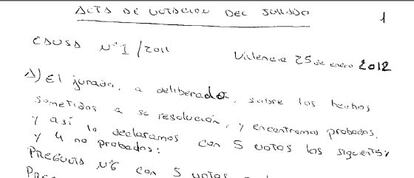 ACTA DE VOTACION DEL JURADO
1
CAUSA Nº 1/2011
Valencia 25 de enero 2012
A) El jurado, a deliberado, sobre los hechos
sometidos a se resolución, y encontramos probados,
y así lo declaramos con 5 votos los siguentes,
y 4 no probados:
PREGUNTA Nº6 con 5 votos